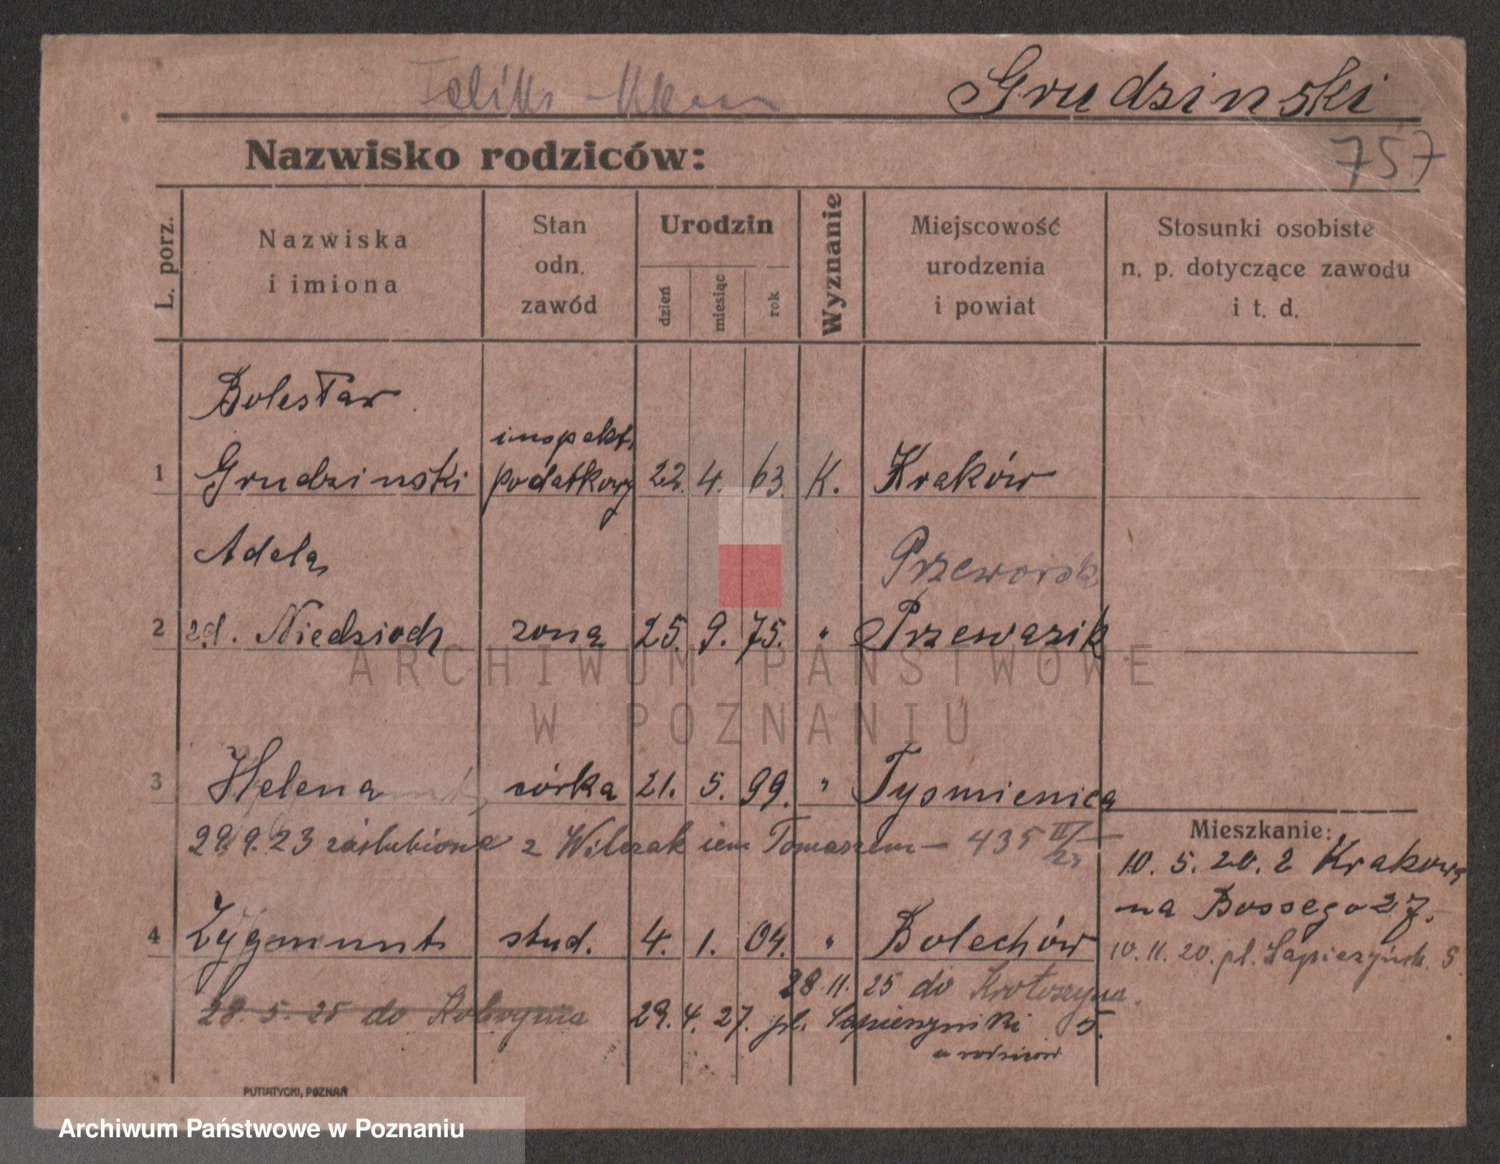 Grudzinski
Nazwisko rodziców:
757
L. porz.
Nazwiska
i imiona
Stan
odn.
zawód
Urodzin
dzień
miesiąc
rok
Wyznanie
Miejscowość
urodzenia
i powiat
Stosunki osobiste
n. p. dotyczące zawodu
i t. d.
Bolesław
inspekt.
1 Grudzinski podatkowy 22. 4. 63. K. Kraków
Adela,
Przeworsk
2 zd. Niedzioch żona 25. 9. 75. " Przewazik
ARCHIWUM PAŃSTWOWE
W POZNANIU
3 Helena córka 21. 5. 99. " Tyśmienica
29.9.23 zaślubiona z Wilczakiem Tomaszem – 435
Mieszkanie:
10. 5. 20. z Krakowa
na Bossego 27.
4 Zygmunt stud. 4. 1. 04. " Bolechów
10. 11. 20. pl. Sapieżyńsk. 5
28 11. 25 do Krotoszyna.
28. 5. 25 do Kobrynia 29. 4. 27. pl. Sapieżyński 5.
u rodziców
PUTIATYCKI, POZNAŃ
Archiwum Państwowe w Poznaniu